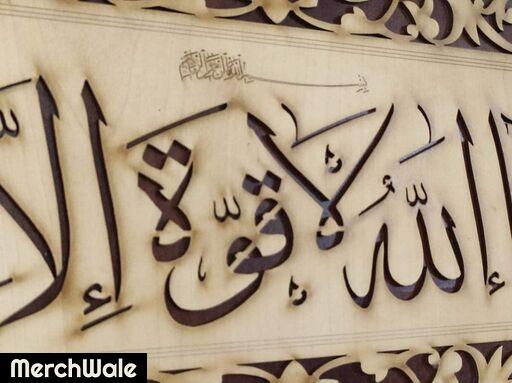 بسم الله الرحمن الرحيم
اللهُ لَا قُوَّةَ إِلَّا
MerchWale